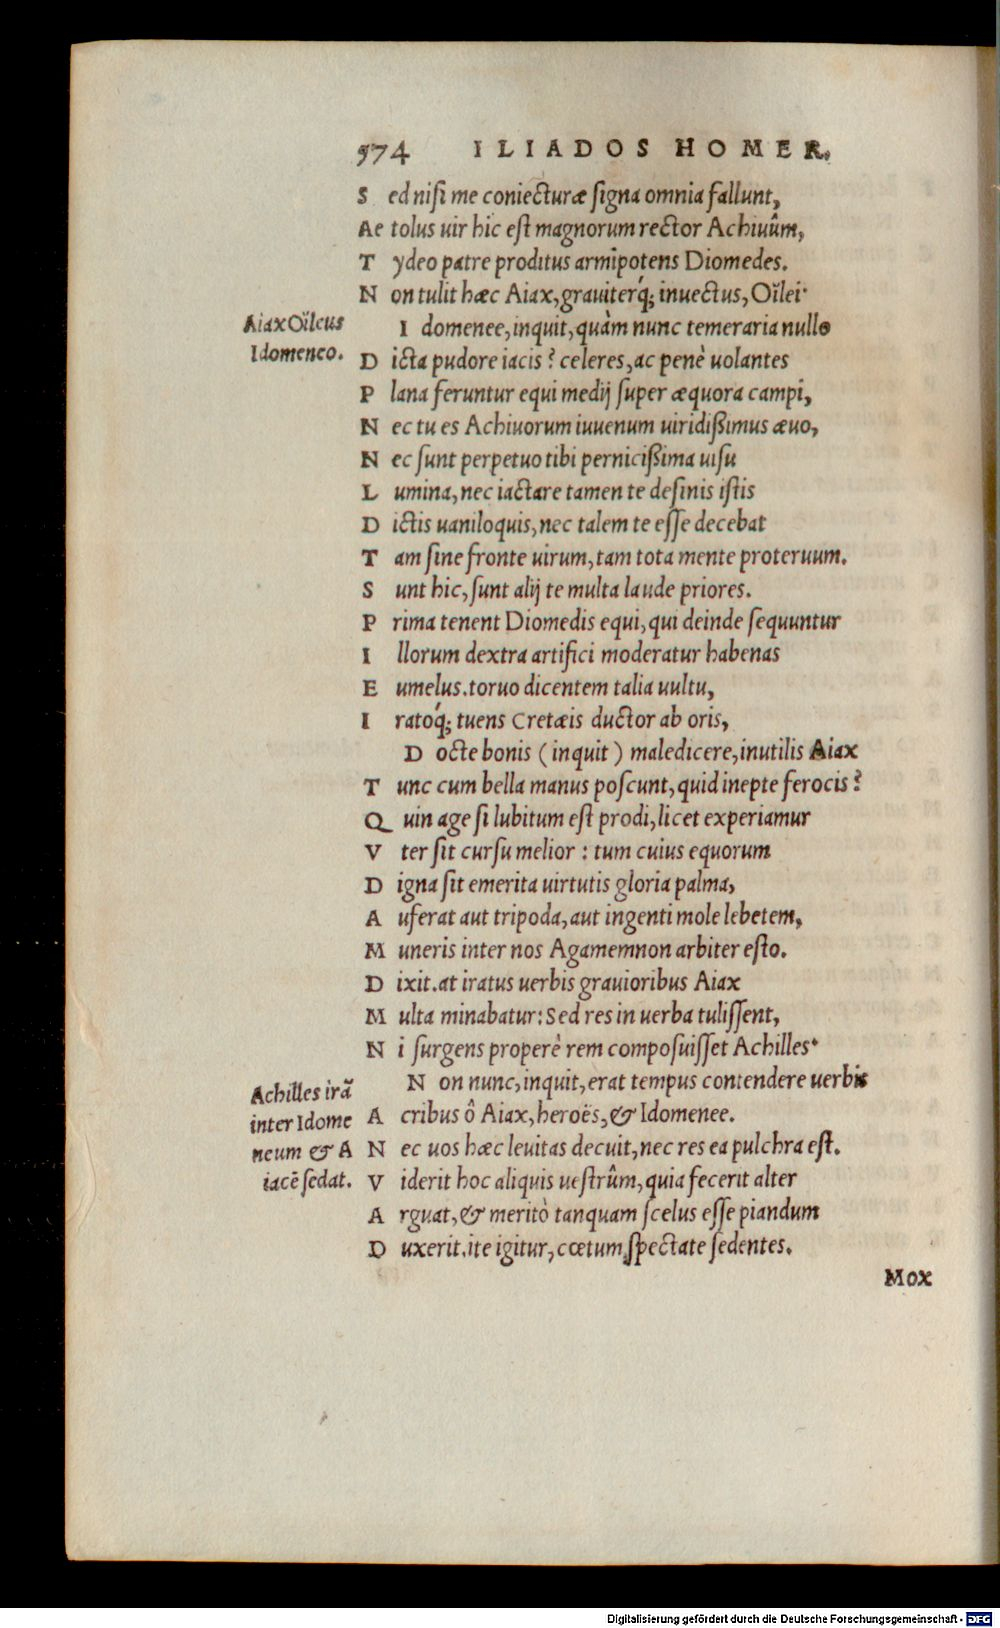 574 ILIADOS HOMER.
Sed nisi me coniecturæ signa omnia fallunt,
Aetolus uir hic est magnorum rector Achiuûm,
Tydeo patre proditus armipotens Diomedes.
Non tulit hæc Aiax, grauiterq́; inuectus, Oïlei·
Aiax Oïleus
Idomeneo.
Idomenee, inquit, quàm nunc temeraria nullo
Dicta pudore iacis? celeres, ac penè uolantes
Plana feruntur equi medij super æquora campi,
Nec tu es Achiuorum iuuenum uiridißimus æuo,
Nec sunt perpetuo tibi pernicißima uisu
Lumina, nec iactare tamen te desinis istis
Dictis uaniloquis, nec talem te esse decebat
Tam sine fronte uirum, tam tota mente proteruum.
Sunt hic, sunt alij te multa laude priores.
Prima tenent Diomedis equi, qui deinde sequuntur
Illorum dextra artifici moderatur habenas
Eumelus. toruo dicentem talia uultu,
Iratoq́; tuens Cretæis ductor ab oris,
Docte bonis (inquit) maledicere, inutilis Aiax
Tunc cum bella manus poscunt, quid inepte ferocis?
Quin age si lubitum est prodi, licet experiamur
Vter sit cursu melior: tum cuius equorum
Digna sit emerita uirtutis gloria palma,
Auferat aut tripoda, aut ingenti mole lebetem,
Muneris inter nos Agamemnon arbiter esto.
Dixit. at iratus uerbis grauioribus Aiax
Multa minabatur: Sed res in uerba tulissent,
Ni surgens properè rem composuisset Achilles·
Achilles irã
inter Idome
neum & A
iacē sedat.
Non nunc, inquit, erat tempus contendere uerbis
Acribus ô Aiax, heroës, & Idomenee.
Nec uos hæc leuitas decuit, nec res ea pulchra est.
Viderit hoc aliquis uestrûm, quia fecerit alter
Arguat, & meritò tanquam scelus esse piandum
Duxerit. ite igitur, cœtum spectate sedentes.
Mox
Digitalisierung gefördert durch die Deutsche Forschungsgemeinschaft - DFG